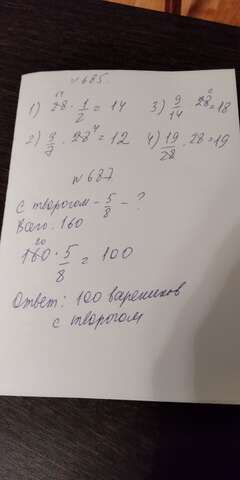 №685.
1) 28 · 1/2 = 14 3) 9/14 28 = 18
2) 3/7 · 28 = 12 4) 19/28 · 28 = 19
№687
С творогом - 5/8 - ?
Всего - 160
160 · 5/8 = 100
Ответ: 100 вареников
с творогом